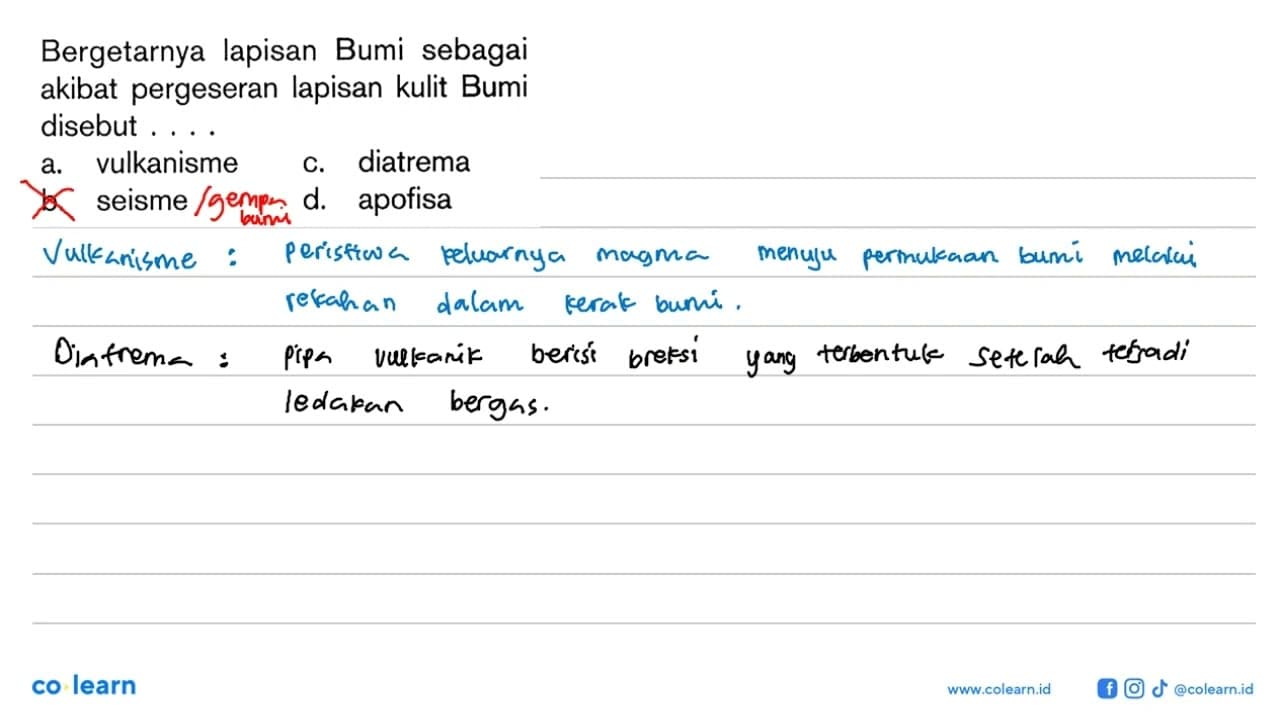 Bergetarnya lapisan Bumi sebagai
akibat pergeseran lapisan kulit Bumi
disebut . . . .
a. vulkanisme c. diatrema
b. seisme /gempa bumi d. apofisa
Vulkanisme : peristiwa keluarnya magma menuju permukaan bumi melalui
rekahan dalam kerak bumi.
Diatrema : pipa vulkanik berisi breksi yang terbentuk setelah terjadi
ledakan bergas.
co learn www.colearn.id @colearn.id